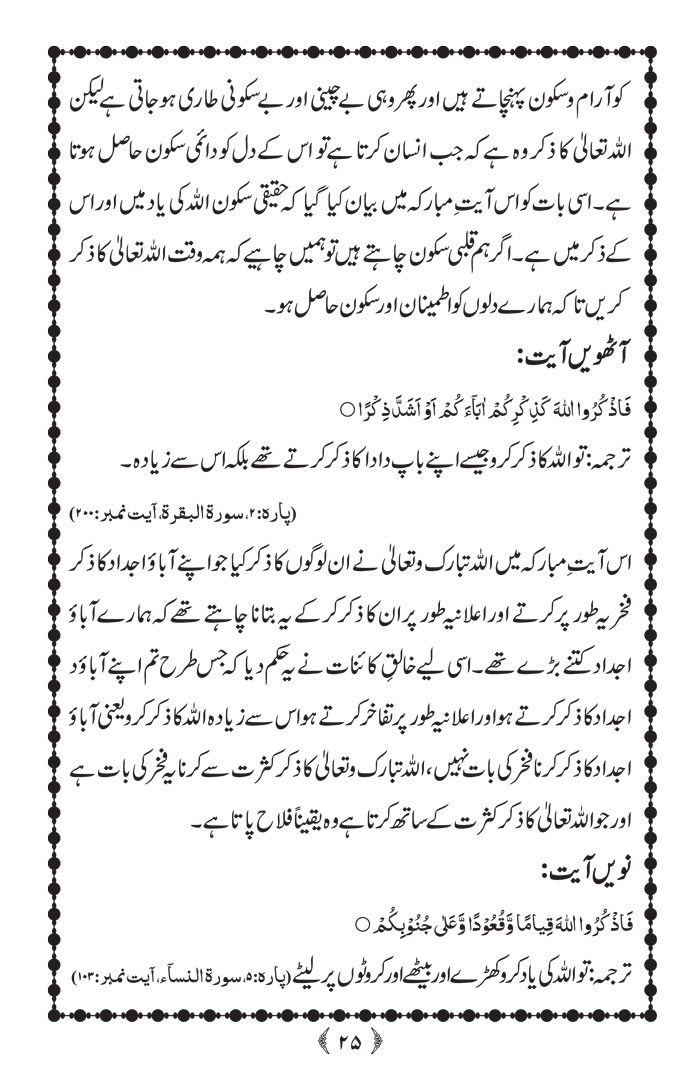 کو آرام و سکون پہنچاتے ہیں اور پھر وہی بے چینی اور بے سکونی طاری ہو جاتی ہے لیکن
اللہ تعالیٰ کا ذکر وہ ہے کہ جب انسان کرتا ہے تو اس کے دل کو دائمی سکون حاصل ہوتا
ہے۔ اسی بات کو اس آیتِ مبارکہ میں بیان کیا گیا کہ حقیقی سکون اللہ کی یاد میں اور اس
کے ذکر میں ہے۔ اگر ہم قلبی سکون چاہتے ہیں تو ہمیں چاہیے کہ ہمہ وقت اللہ تعالیٰ کا ذکر
کریں تا کہ ہمارے دلوں کو اطمینان اور سکون حاصل ہو۔
آٹھویں آیت:
فَاذْكُرُوا اللهَ كَذِكْرِكُمْ اٰبَآءَكُمْ اَوْ اَشَدَّ ذِكْرًا ○
ترجمہ: تو اللہ کا ذکر کرو جیسے اپنے باپ دادا کا ذکر کرتے تھے بلکہ اس سے زیادہ۔
(پارہ: ۲، سورۃ البقرۃ، آیت نمبر: ۲۰۰)
اس آیتِ مبارکہ میں اللہ تبارک وتعالیٰ نے ان لوگوں کا ذکر کیا جو اپنے آباؤ اجداد کا ذکر
فخریہ طور پر کرتے اور اعلانیہ طور پر ان کا ذکر کر کے یہ بتانا چاہتے تھے کہ ہمارے آباؤ
اجداد کتنے بڑے تھے۔ اسی لیے خالقِ کائنات نے یہ حکم دیا کہ جس طرح تم اپنے آباؤد
اجداد کا ذکر کرتے ہو اور اعلانیہ طور پر تفاخر کرتے ہو اس سے زیادہ اللہ کا ذکر کرو یعنی آباؤ
اجداد کا ذکر کرنا فخر کی بات نہیں، اللہ تبارک وتعالیٰ کا ذکر کثرت سے کرنا یہ فخر کی بات ہے
اور جو اللہ تعالیٰ کا ذکر کثرت کے ساتھ کرتا ہے وہ یقیناً فلاح پاتا ہے۔
نویں آیت:
فَاذْكُرُوا اللهَ قِيامًا وَّقُعُوْدًا وَّعَلٰى جُنُوْبِكُمْ ○
ترجمہ: تو اللہ کی یاد کرو کھڑے اور بیٹھے اور کروٹوں پر لیٹے (پارہ: ۵، سورۃ النسآء، آیت نمبر: ۱۰۳)
۲۵